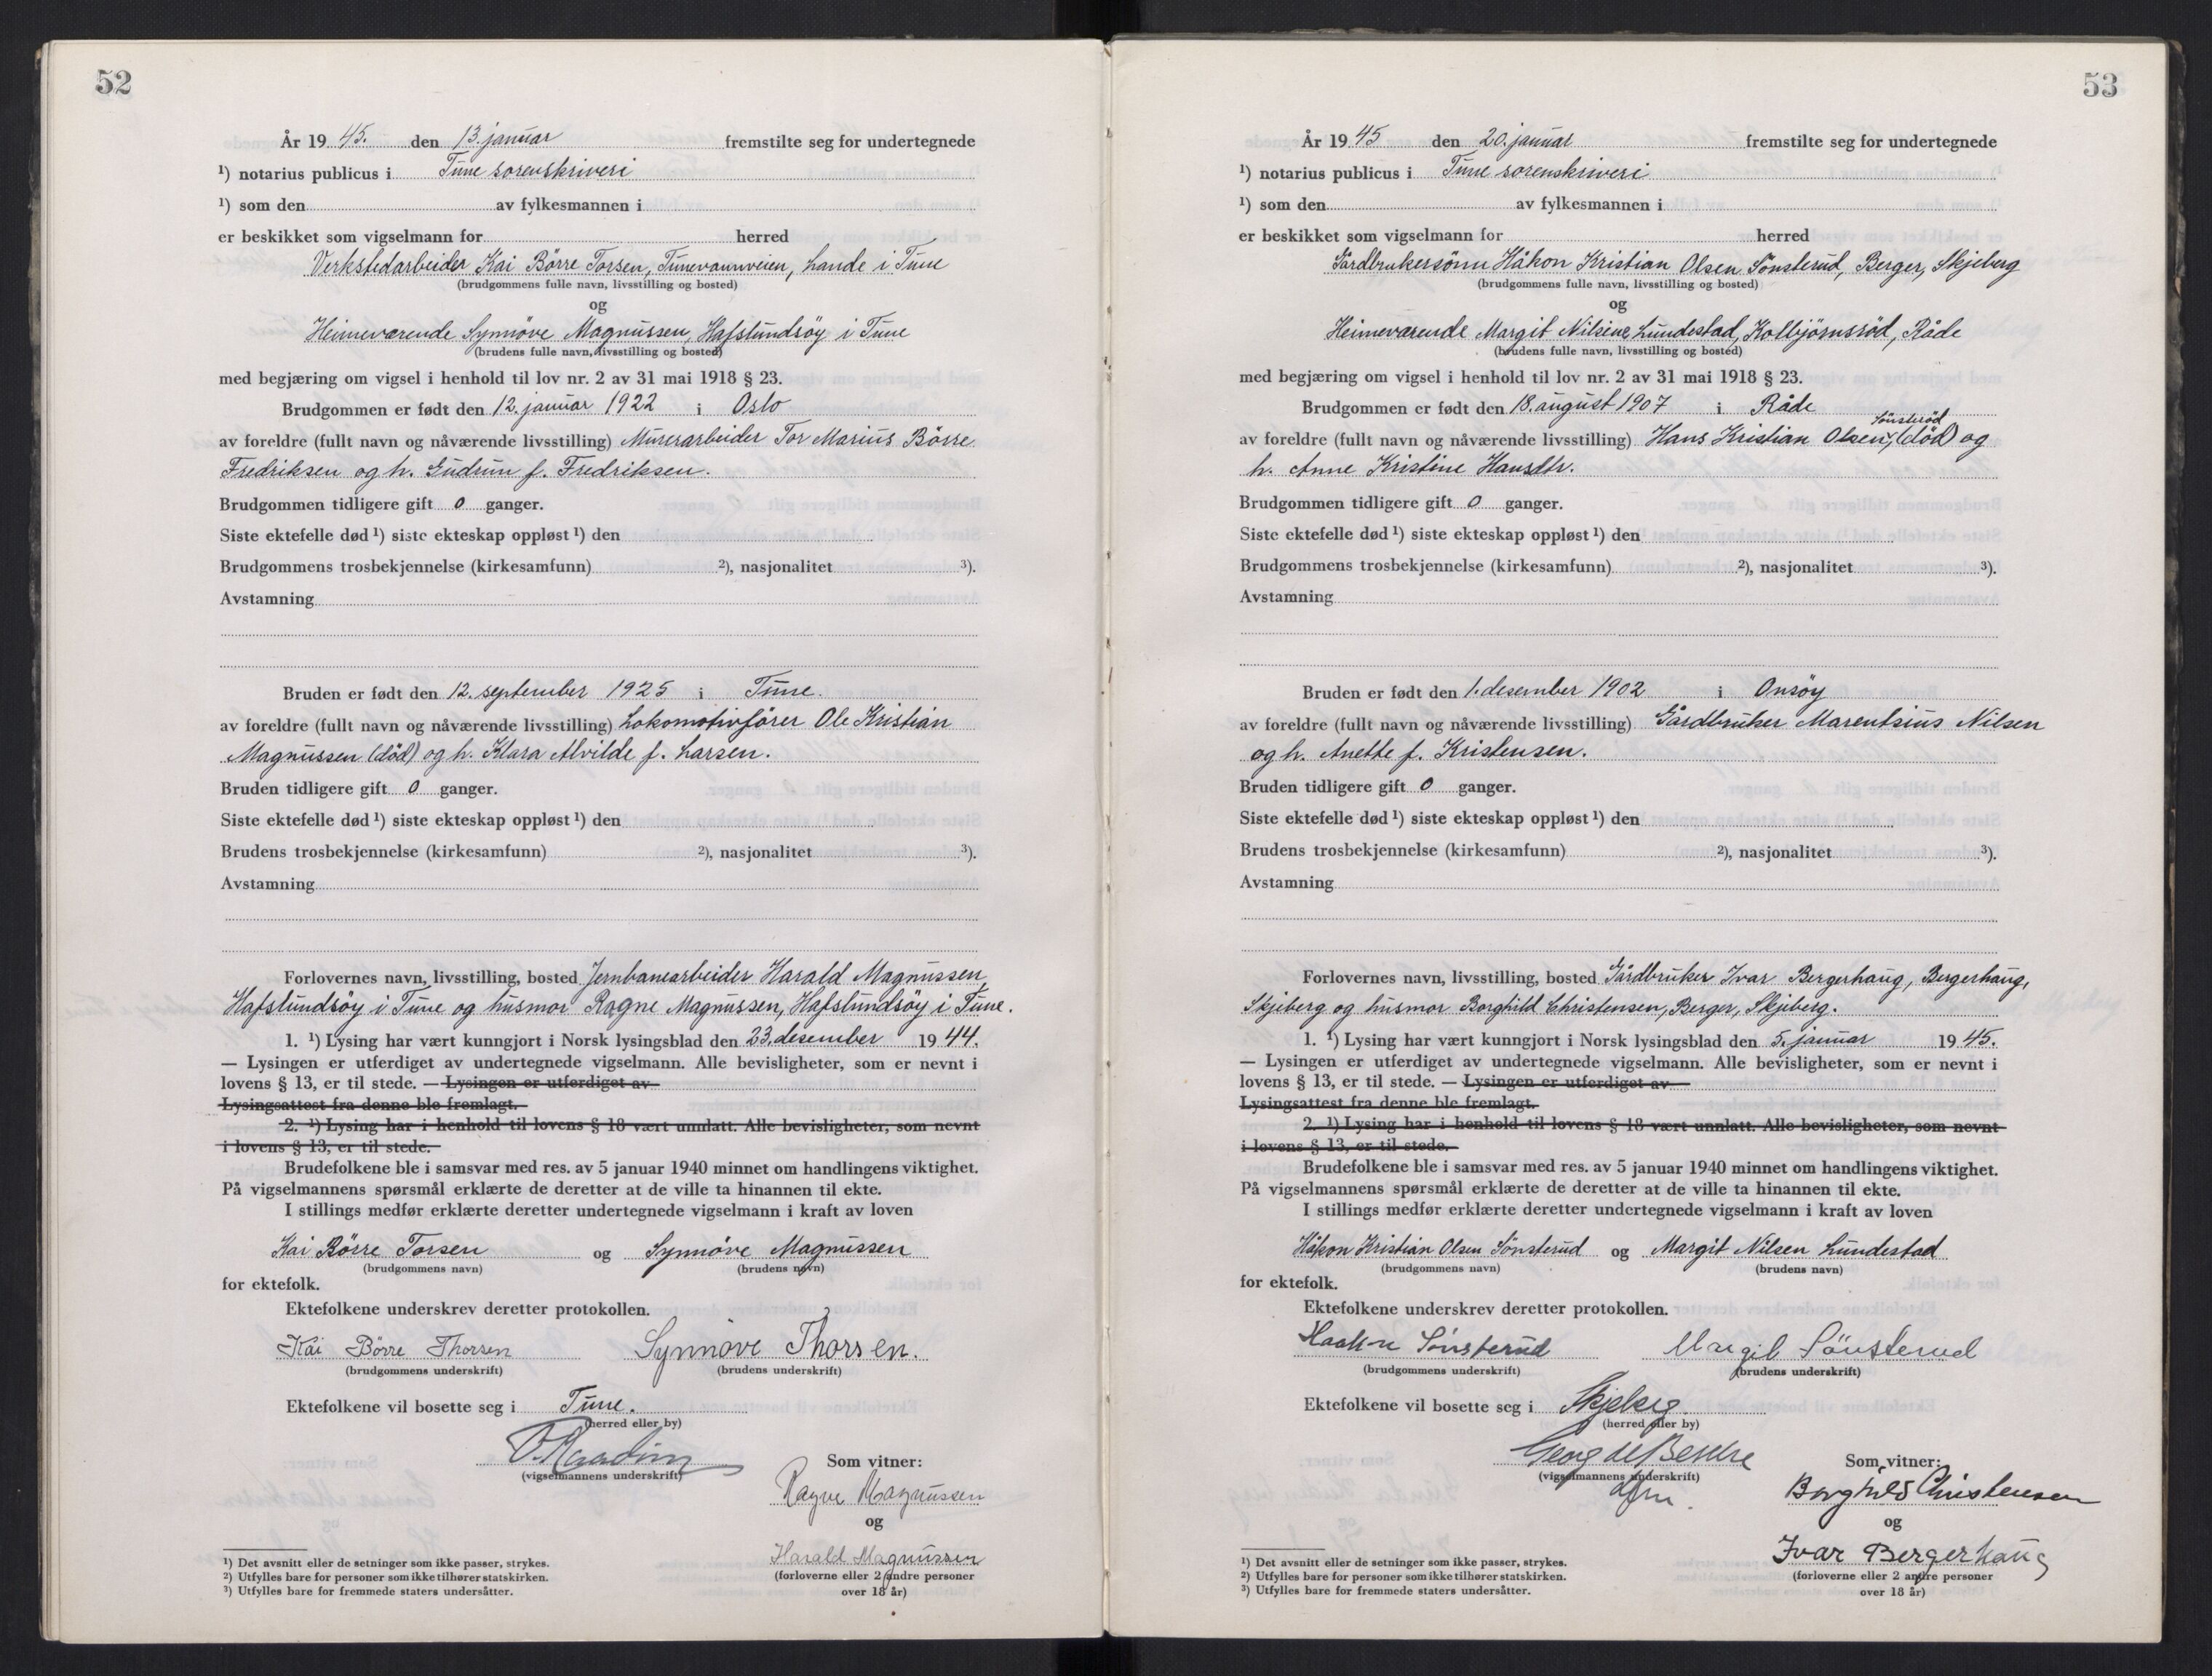 52
År 19 45. den 13. januar fremstilte seg for undertegnede
¹) notarius publicus i Tune sorenskriveri
¹) som den av fylkesmannen i
er beskikket som vigselmann for herred
Verkstedarbeider Kai Börre Torsen, Tunevannveien, Lande i Tune
(brudgommens fulle navn, livsstilling og bosted)
og
Heimeværende Synnöve Magnussen, Hafslundsöy i Tune
(brudens fulle navn, livsstilling og bosted)
med begjæring om vigsel i henhold til lov nr. 2 av 31 mai 1918 § 23.
Brudgommen er født den 12. januar 1922 i Oslo
av foreldre (fullt navn og nåværende livsstilling) Murerarbeider Tor Marius Börre
Fredriksen og h. Gudrun f. Fredriksen.
Brudgommen tidligere gift 0 ganger.
Siste ektefelle død ¹) siste ekteskap oppløst ¹) den
Brudgommens trosbekjennelse (kirkesamfunn) ²), nasjonalitet ³).
Avstamning
Bruden er født den 12. september 1925 i Tune.
av foreldre (fullt navn og nåværende livsstilling) Lokomotivförer Ole Kristian
Magnussen (död) og h. Klara Alvilde f. Larsen.
Bruden tidligere gift 0 ganger.
Siste ektefelle død ¹) siste ekteskap oppløst ¹) den
Brudens trosbekjennelse (kirkesamfunn) ²), nasjonalitet ³).
Avstamning
Forlovernes navn, livsstilling, bosted Jernbanearbeider Harald Magnussen,
Hafslundsöy i Tune og husmor Ragne Magnussen, Hafslundsöy i Tune.
1. ¹) Lysing har vært kunngjort i Norsk lysingsblad den 23. desember 19 44.
— Lysingen er utferdiget av undertegnede vigselmann. Alle bevisligheter, som er nevnt i
lovens § 13, er til stede. — Lysingen er utferdiget av
Lysingsattest fra denne ble fremlagt.
2. ¹) Lysing har i henhold til lovens § 18 vært unnlatt. Alle bevisligheter, som nevnt
i lovens § 13, er til stede.
Brudefolkene ble i samsvar med res. av 5 januar 1940 minnet om handlingens viktighet.
På vigselmannens spørsmål erklærte de deretter at de ville ta hinannen til ekte.
I stillings medfør erklærte deretter undertegnede vigselmann i kraft av loven
Kai Börre Torsen og Synnöve Magnussen
(brudgommens navn) (brudens navn)
for ektefolk.
Ektefolkene underskrev deretter protokollen.
Kai Börre Thorsen Synnöve Thorsen.
(brudgommens underskrift) (brudens underskrift)
Ektefolkene vil bosette seg i Tune.
(herred eller by)
(vigselmannens underskrift)
Som vitner:
Ragne Magnussen
og
Harald Magnussen
(forloverne eller 2 andre personer
over 18 år)
¹) Det avsnitt eller de setninger som ikke passer, strykes.
²) Utfylles bare for personer som ikke tilhører statskirken.
³) Utfylles bare for fremmede staters undersåtter.
53
År 19 45 den 20. januar fremstilte seg for undertegnede
¹) notarius publicus i Tune sorenskriveri
¹) som den av fylkesmannen i
er beskikket som vigselmann for herred
Gårdbrukersönn Håkon Kristian Olsen Sönsterud, Berger, Skjeberg
(brudgommens fulle navn, livsstilling og bosted)
og
Heimeværende Margit Nilsine Lundestad, Kolbjörnsröd, Råde
(brudens fulle navn, livsstilling og bosted)
med begjæring om vigsel i henhold til lov nr. 2 av 31 mai 1918 § 23.
Brudgommen er født den 18. august 1907 i Råde
Sönsteröd
av foreldre (fullt navn og nåværende livsstilling) Hans Kristian Olsen, (död) og
h. Anne Kristine Hansdtr.
Brudgommen tidligere gift 0 ganger.
Siste ektefelle død ¹) siste ekteskap oppløst ¹) den
Brudgommens trosbekjennelse (kirkesamfunn) ²), nasjonalitet ³).
Avstamning
Bruden er født den 1. desember 1902 i Onsöy
av foreldre (fullt navn og nåværende livsstilling) Gårdbruker Marentsius Nilsen
og h. Anette f. Kristensen.
Bruden tidligere gift 0 ganger.
Siste ektefelle død ¹) siste ekteskap oppløst ¹) den
Brudens trosbekjennelse (kirkesamfunn) ²), nasjonalitet ³).
Avstamning
Forlovernes navn, livsstilling, bosted Gårdbruker Ivar Bergerhaug, Bergerhaug,
Skjeberg og husmor Borghild Christensen, Berger, Skjeberg.
1. ¹) Lysing har vært kunngjort i Norsk lysingsblad den 5. januar 19 45.
— Lysingen er utferdiget av undertegnede vigselmann. Alle bevisligheter, som er nevnt i
lovens § 13, er til stede. — Lysingen er utferdiget av
Lysingsattest fra denne ble fremlagt.
2. ¹) Lysing har i henhold til lovens § 18 vært unnlatt. Alle bevisligheter, som nevnt
i lovens § 13, er til stede.
Brudefolkene ble i samsvar med res. av 5 januar 1940 minnet om handlingens viktighet.
På vigselmannens spørsmål erklærte de deretter at de ville ta hinannen til ekte.
I stillings medfør erklærte deretter undertegnede vigselmann i kraft av loven
Håkon Kristian Olsen Sönsterud og Margit Nilsen Lundestad
(brudgommens navn) (brudens navn)
for ektefolk.
Ektefolkene underskrev deretter protokollen.
Haakon Sönsterud Margit Sönsterud
(brudgommens underskrift) (brudens underskrift)
Ektefolkene vil bosette seg i Skjeberg.
(herred eller by)
Georg de Besche
(vigselmannens underskrift)
Som vitner:
Borghild Christensen
og
Ivar Bergerhaug
(forloverne eller 2 andre personer
over 18 år)
¹) Det avsnitt eller de setninger som ikke passer, strykes.
²) Utfylles bare for personer som ikke tilhører statskirken.
³) Utfylles bare for fremmede staters undersåtter.